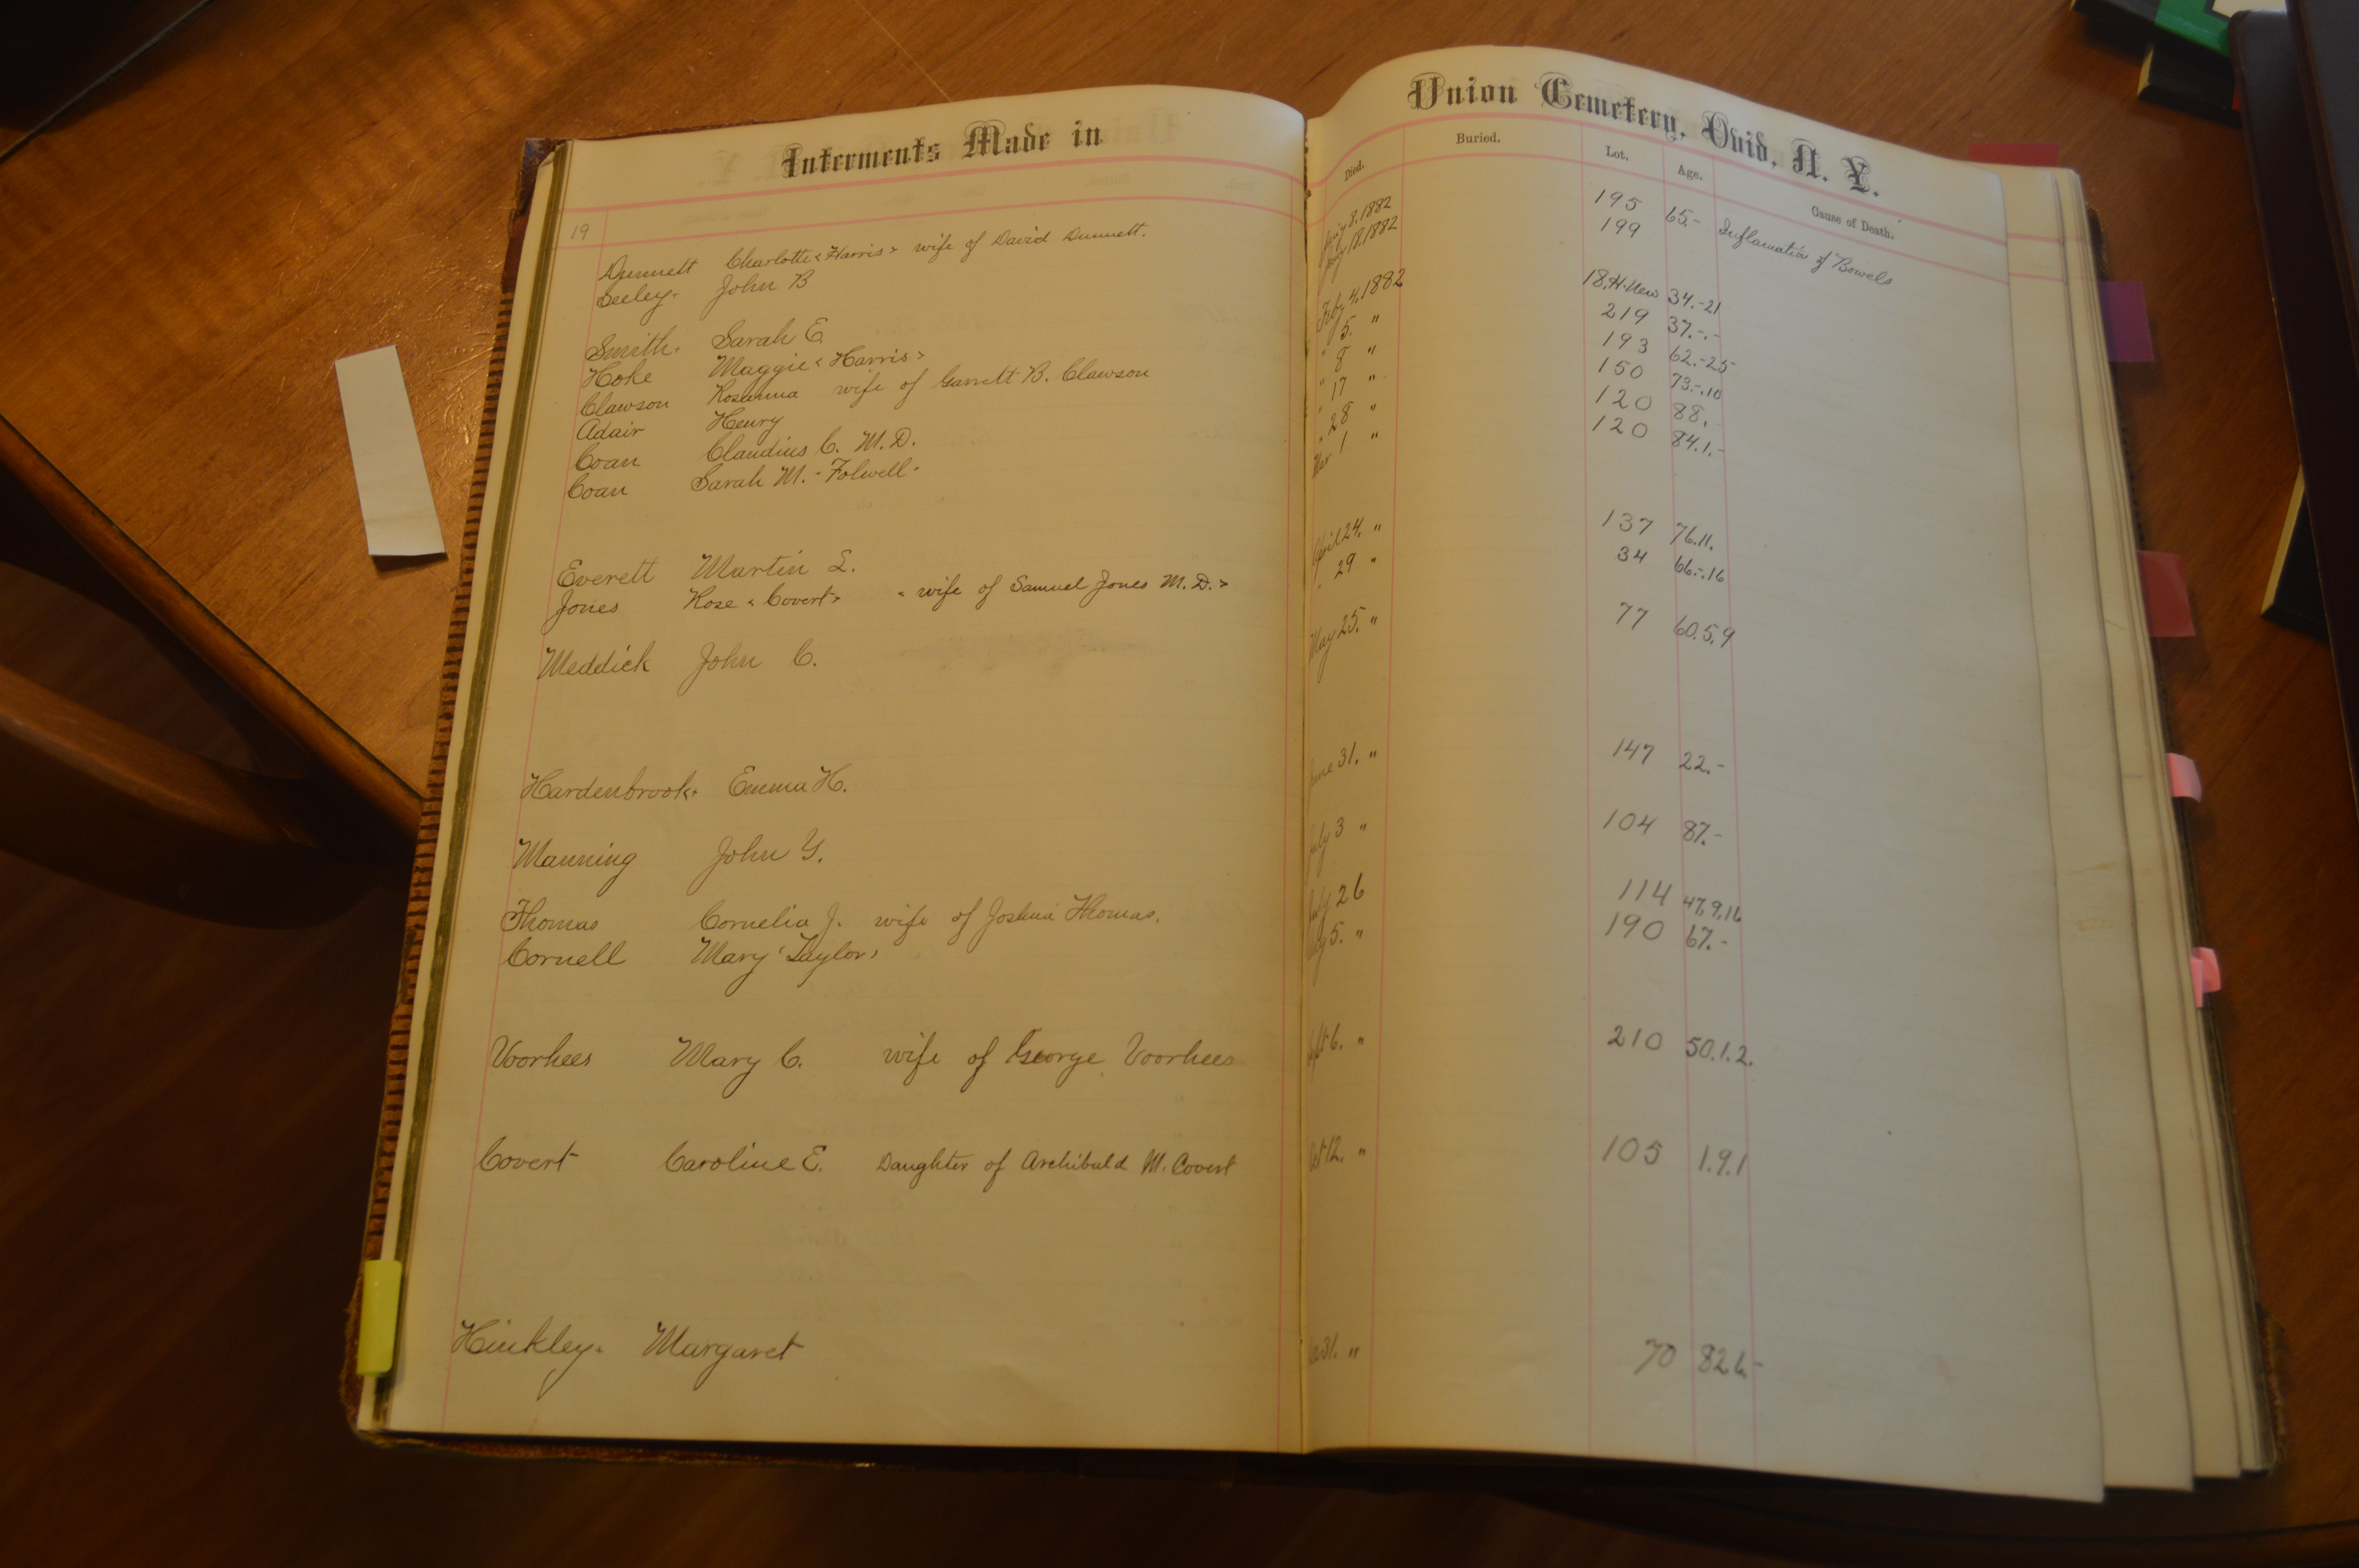 Interments Made in Union Cemetery, Ovid, N. Y.
Died. Buried. Lot. Age. Cause of Death.
19
Dunnett Charlotte < Harris > wife of David Dunnett. 8, 1882 195 65.- Inflamation of Bowels
Seeley. John B 1882 199
Smith. Sarah E. Feby 4, 1882 18, H. New 34.-21
Hoke Maggie < Harris > " 5. " 219 37.-.-
Clawson Rosanna wife of Garrett B. Clawson " 8 " 193 62.-25
Adair Henry " 17 " 150 73.-.10
Coan Claudius C. M. D. " 28 " 120 88.
Coan Sarah M. - Folwell - Mar 1 " 120 84.1.-
Everett Martin L. April 24. " 137 76.11.
Jones Rose < Covert > < wife of Samuel Jones M. D. > " 29 " 34 66.-.16
Meddick John C. May 25. " 77 60.5.9
Hardenbrook. Emma H. June 31. " 147 22.-
Manning John Y. July 3 " 104 87.-
Thomas Cornelia J. wife of Joshua Thomas. July 26 114 47,9,16
Cornell Mary < Taylor > 5. " 190 67.-
Voorhees Mary C. wife of George Voorhees Sept 6. " 210 50.1.2.
Covert Caroline E. Daughter of Archibald M. Covert Oct 12. " 105 1.9.1
Hinkley. Margaret 31. " 70 82 6.-